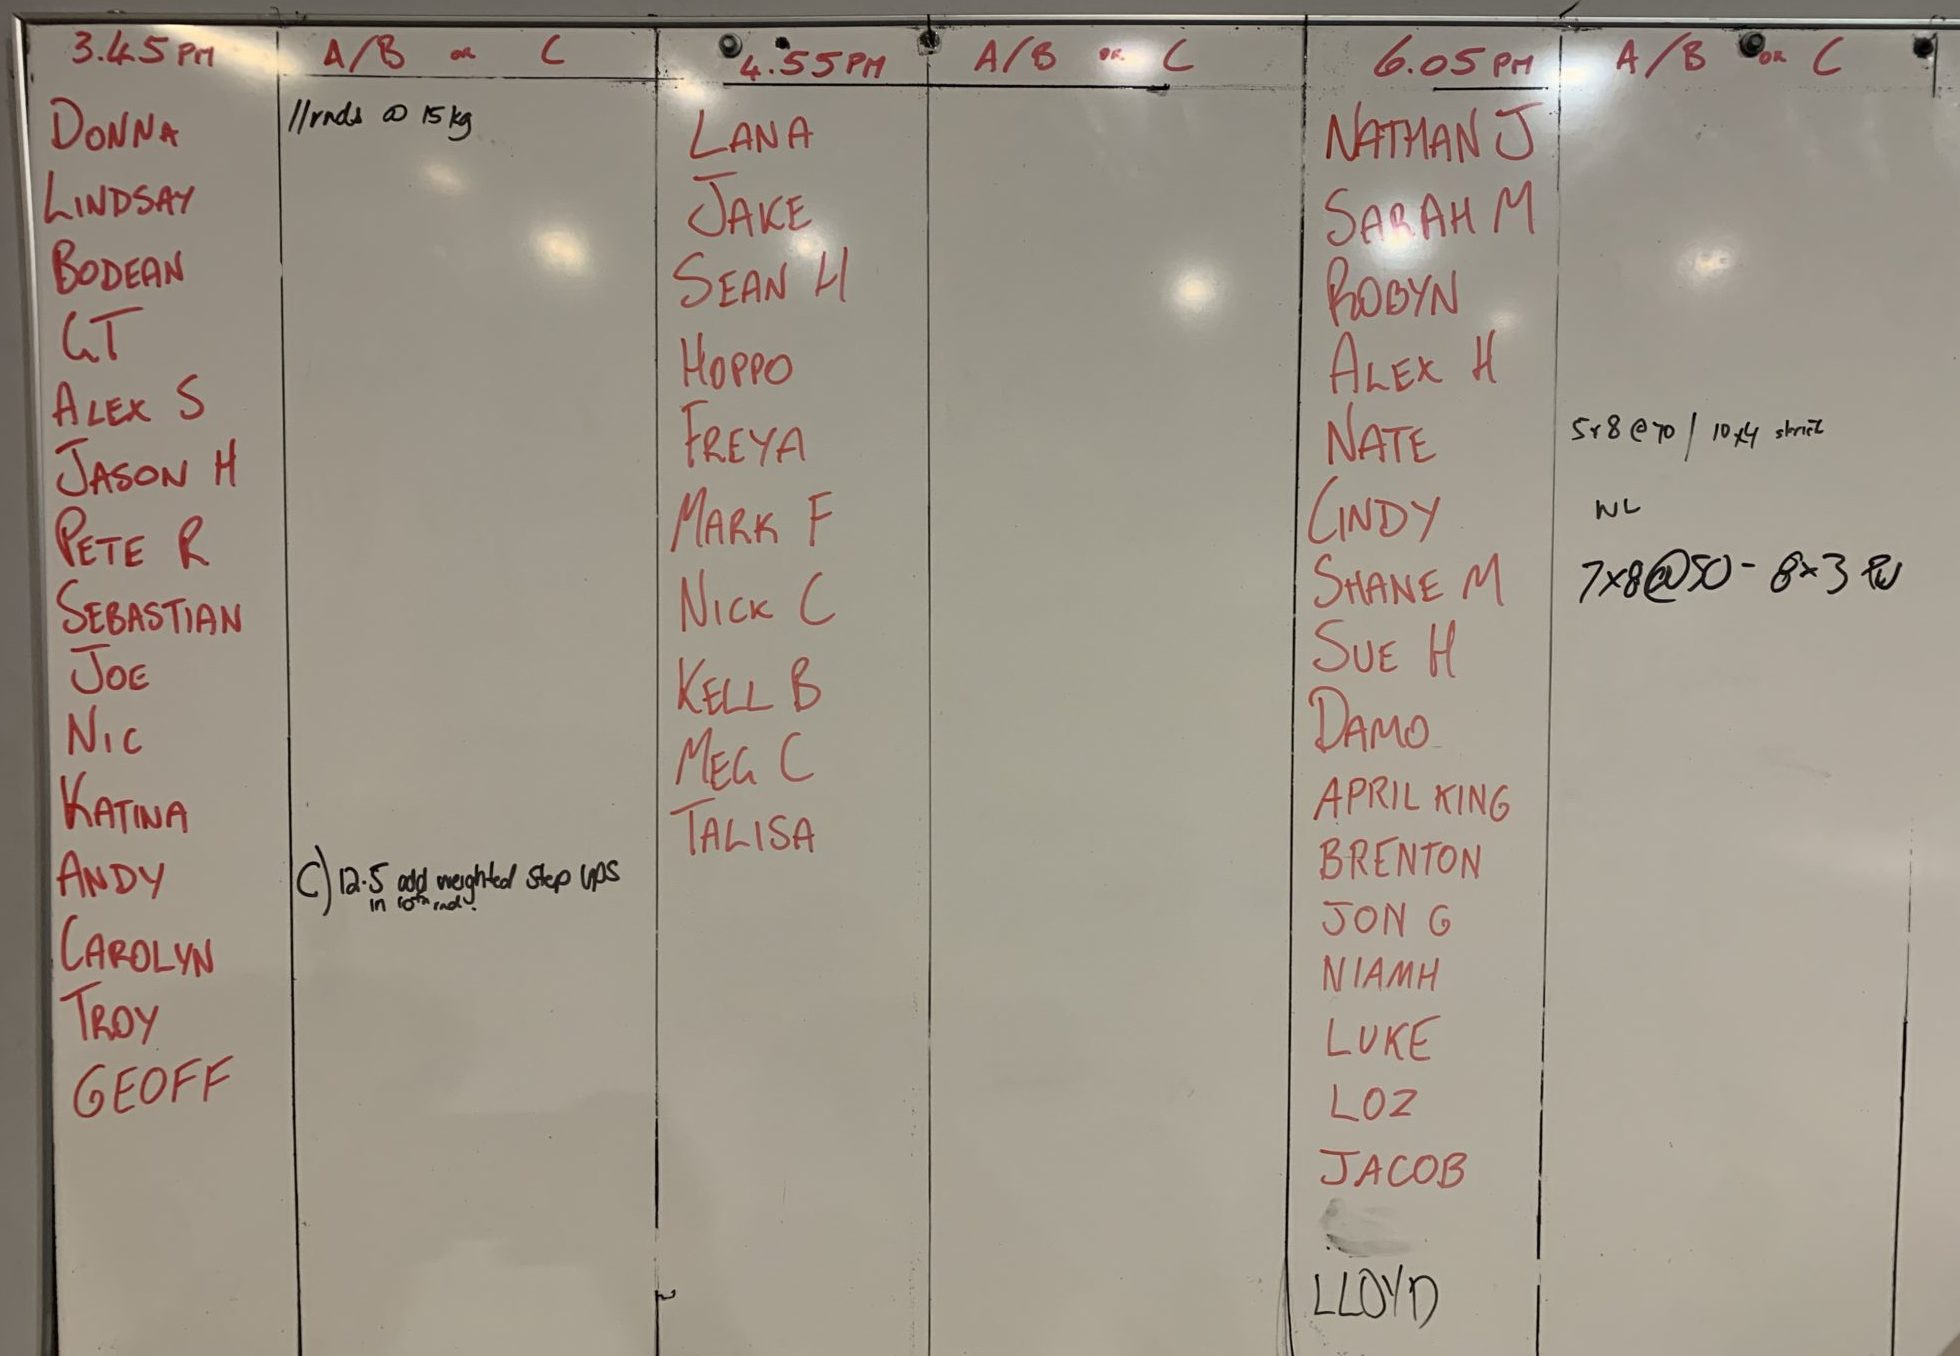 3.45PM
A/B or C
DONNA
11rnds @ 15kg
LINDSAY
BODEAN
GT
ALEX S
JASON H
PETE R
SEBASTIAN
JOE
NIC
KATINA
ANDY
C) 12.5 add weighted step ups
in 10th rnd.
CAROLYN
TROY
GEOFF
4.55PM
A/B or C
LANA
JAKE
SEAN H
HOPPO
FREYA
MARK F
NICK C
KELL B
MEG C
TALISA
6.05PM
A/B or C
NATHAN J
SARAH M
ROBYN
ALEX H
NATE
5x8 @ 70 / 10x4 strict
CINDY
WL
SHANE M
7x8@50 - 8x3 PU
SUE H
DAMO
APRIL KING
BRENTON
JON G
NIAMH
LUKE
LOZ
JACOB
LLOYD